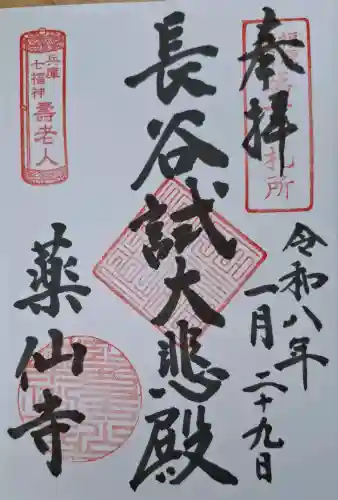 奉拝
札所
令和八年
一月二十九日
長谷試大悲殿
兵庫
七福神
壽老人
薬仙寺